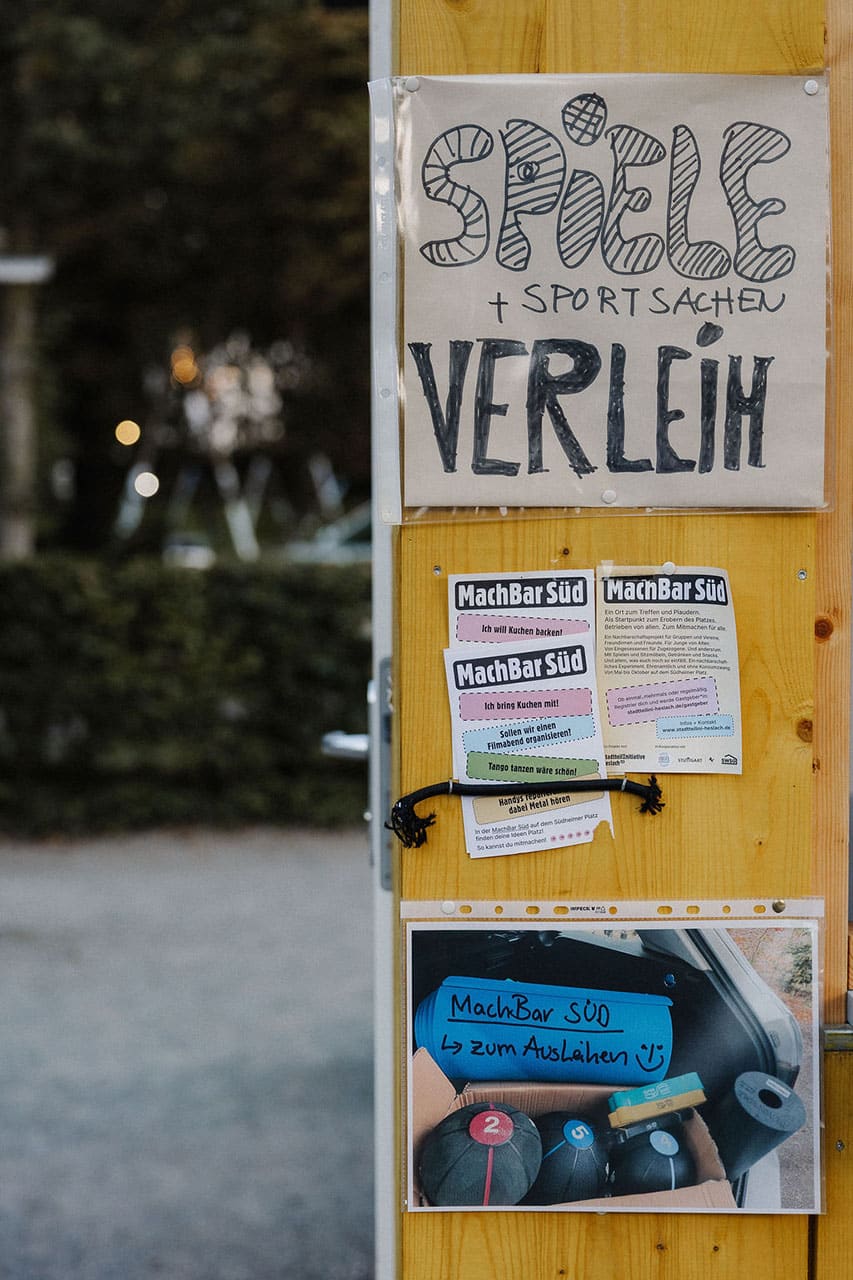 SPiELE
+ SPORTSACHEN
VERLEiH
MachBar Süd
Ich will Kuchen backen!
MachBar Süd
Ich bring Kuchen mit!
Sollen wir einen
Filmabend organisieren?
Tango tanzen wäre schön!
Handys reparieren
dabei Metal hören
In der MachBar Süd auf dem Südheimer Platz
finden deine Ideen Platz!
So kannst du mitmachen!
MachBar Süd
Ein Ort zum Treffen und Plaudern.
Als Startpunkt zum Erobern des Platzes.
Betrieben von allen. Zum Mitmachen für alle.
Ein Nachbarschaftsprojekt für Gruppen und Vereine,
Freundinnen und Freunde. Für Junge von Alten.
Von Eingesessenen für Zugezogene. Und andersrum.
Mit Spielen und Sitzmöbeln, Getränken und Snacks.
Und allem, was euch noch so einfällt. Ein nachbarschaft-
liches Experiment. Ehrenamtlich und ohne Konsumzwang.
Von Mai bis Oktober auf dem Südheimer Platz
Ob einmal, mehrmals oder regelmäßig
Registrier dich und werde Gastgeber*in:
stadtteilini-heslach.de/gastgeber
Infos + Kontakt
www.stadtteilini-heslach.de
StadtteilInitiative
Heslach
STUTTGART
MachBar SÜD
↳ zum Ausleihen
2
5
4